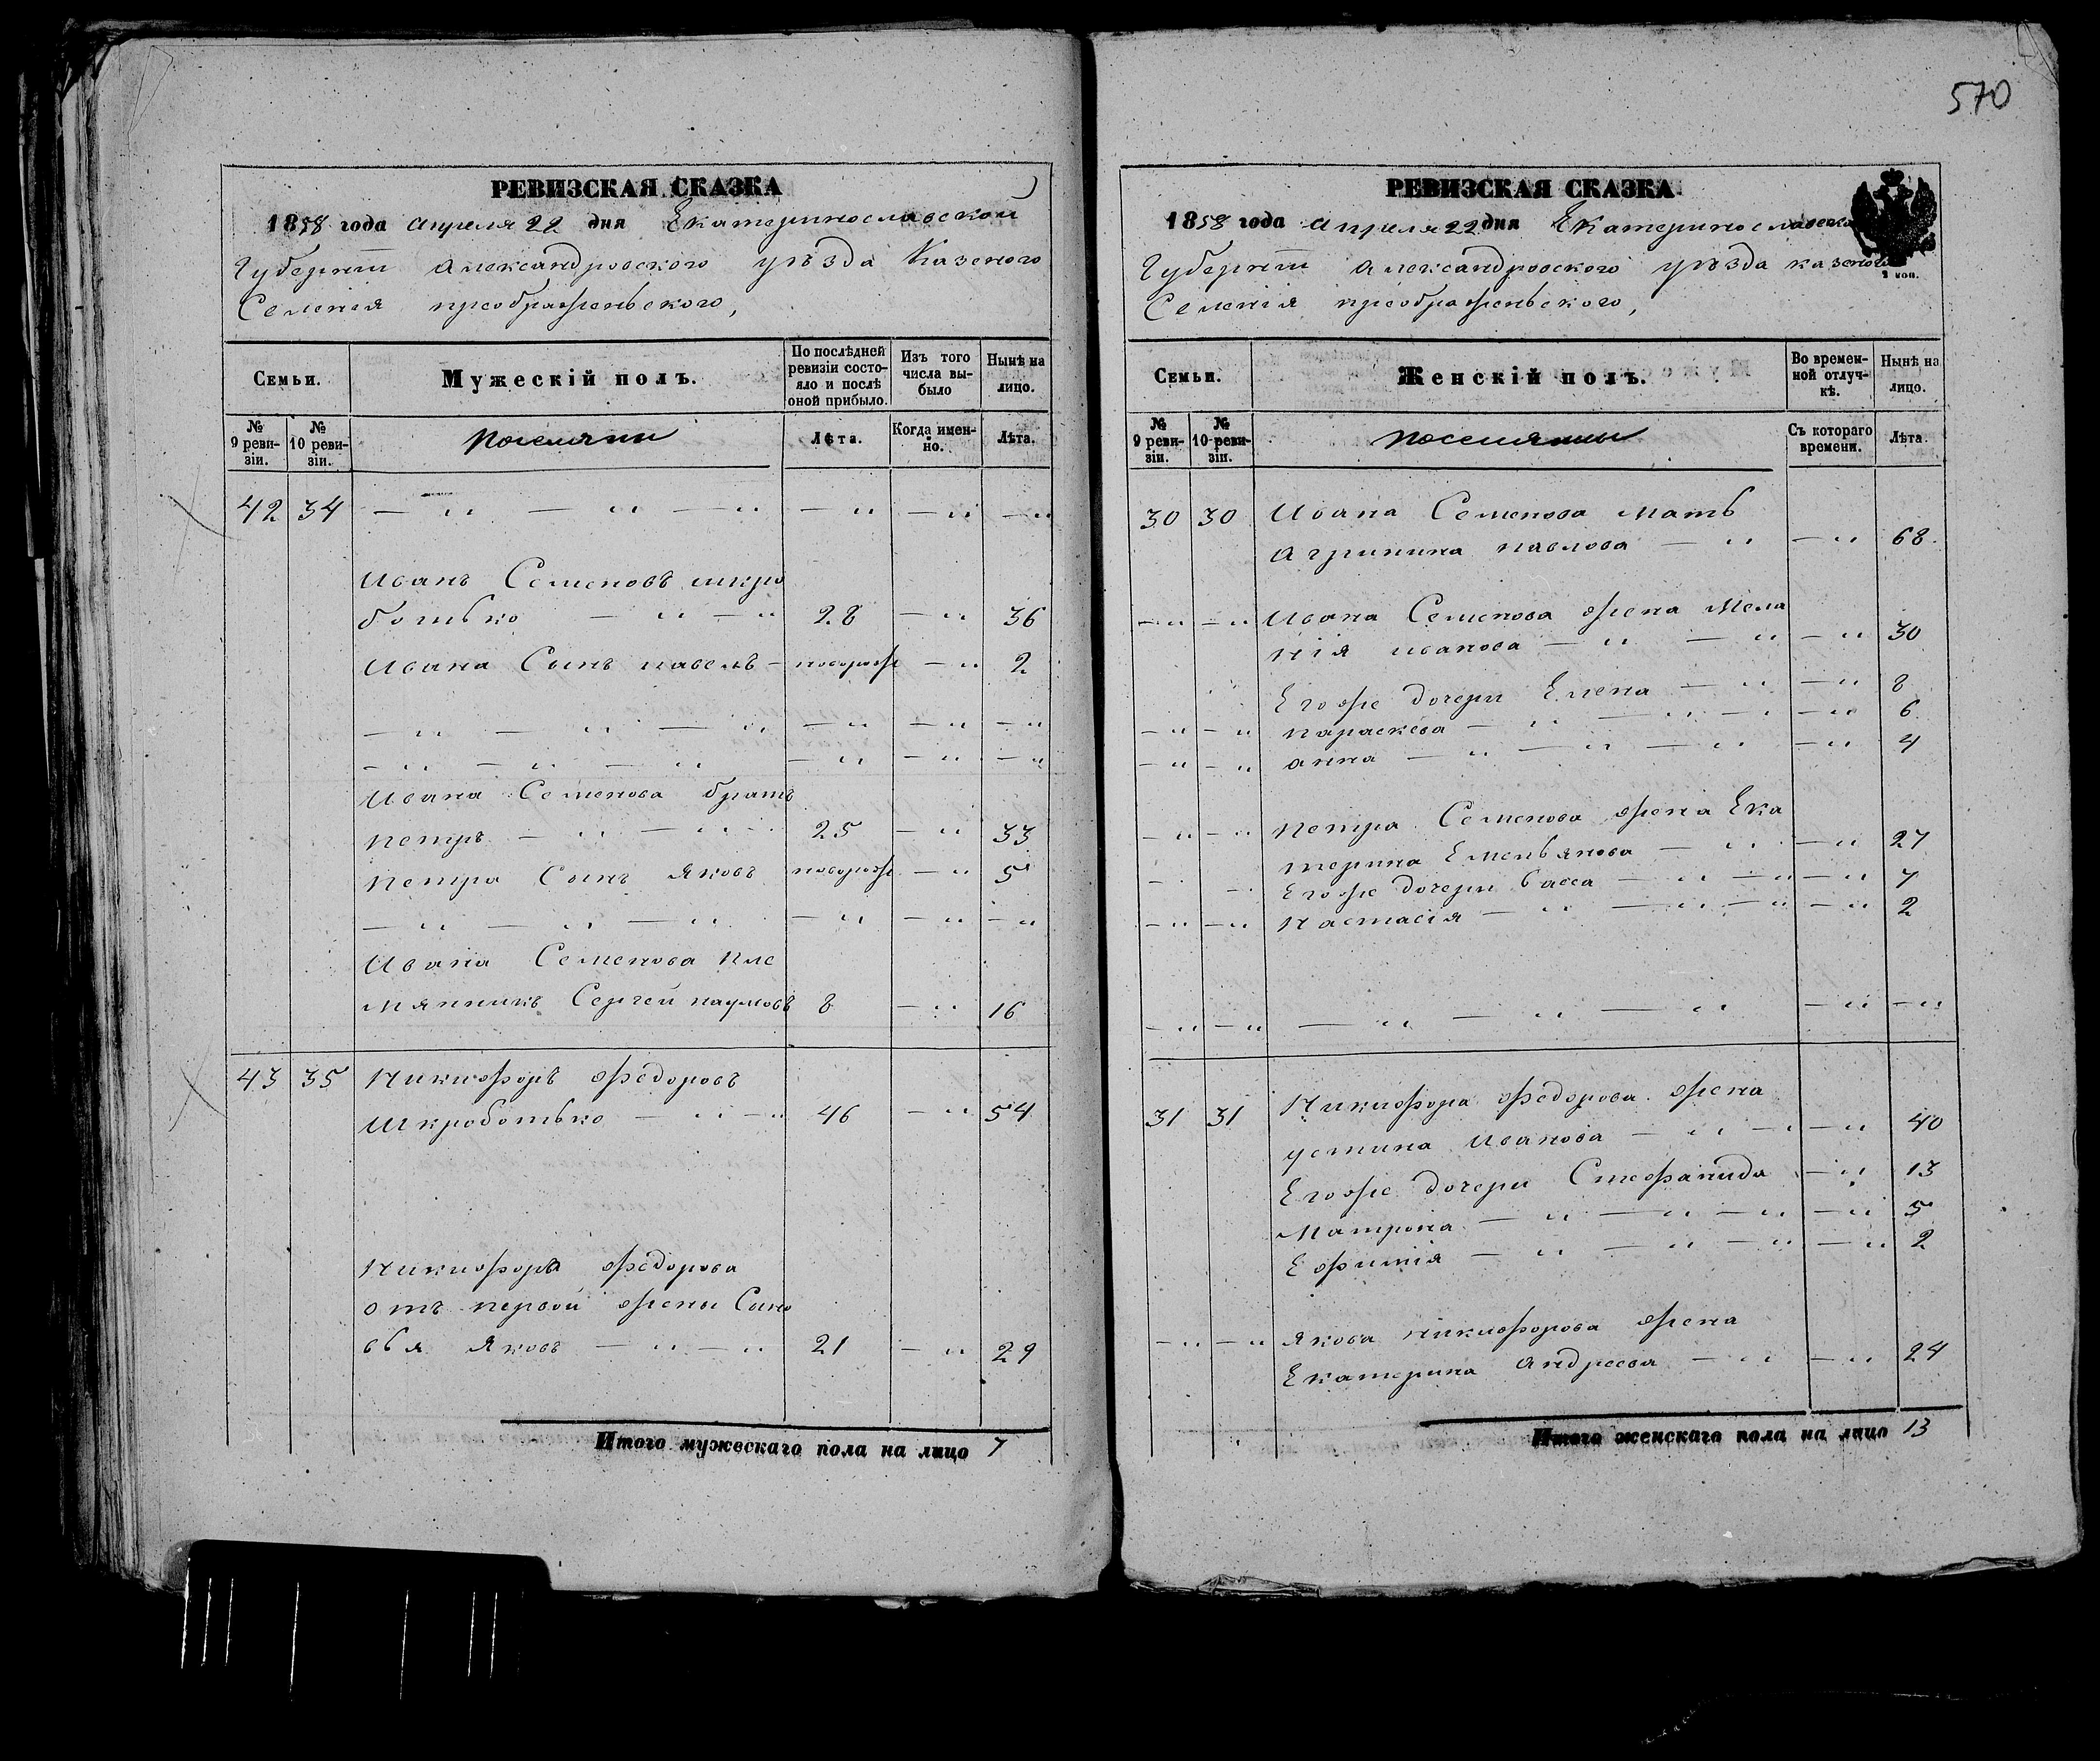 570
РЕВИЗСКАЯ СКАЗКА
1858 года апреля 22 дня Екатеринославской
Губернiи Александровского уѣзда Казеного
Селенiя преображеньского,
Семьи.
Мужескiй полъ.
По послѣдней ревизiи состояло и послѣ оной прибыло.
Изъ того числа выбыло
Нынѣ на лицо.
№ 9 ревизiи.
№ 10 ревизiи.
поселяни
Лѣта.
Когда именно.
Лѣта.
42 34 — " — " — " — " — " — "
Иванъ Семеновъ шкро
ботько — " — " 28 — " 36
Ивана Сынъ павелъ — новорож — " 2
— " — " — " — " — " — "
— " — " — " — " — " — "
Ивана Семенова братъ
петръ — " — " 25 — " 33
петра Сынъ Яковъ новорож — " 5
— " — " — " — " — " — "
Ивана Семенова пле
мянникъ Сергей наумовъ 8 — " 16
43 35 Никифоръ федоровъ
Шкроботько — " — " 46 — " 54
Никифора федорова
отъ первой жены Сыно
вья Яковъ — " — " 21 — " 29
Итого мужескаго пола на лицо 7
РЕВИЗСКАЯ СКАЗКА
1858 года апреля 22 дня Екатеринославско
Губернiи александровского уѣзда казеного
Селенiя преображеньского,
Семьи.
Женскiй полъ.
Во временной отлучкѣ.
Нынѣ на лицо.
№ 9 ревизiи.
№ 10 ревизiи.
поселянки
Съ котораго времени.
Лѣта.
30 30 Ивана Семенова мать
агрипина павлова — " — " 68
— " — " Ивана Семенова жена Мела
нiя иванова — " — " — " 30
Егоже дочери Елена — " — " 8
— " — " параскева — " — " — " — " 6
— " — " анна — " — " — " — " 4
— " — " петра Семенова жена Ека
терина Емельянова — " — " 27
Егоже дочери васса — " — " — " 7
— " — " Настасiя — " — " — " — " 2
— " — " — " — " — " — " — "
31 31 Никифора федорова жена
устина Иванова — " — " — " 40
Егоже дочери Стефанида — " 13
Матрона — " — " — " — " 5
Ефимiя — " — " — " — " 2
— " — " Якова никифорова жена
Екатерина андреева — " — " 24
Итого женскаго пола на лицо 13